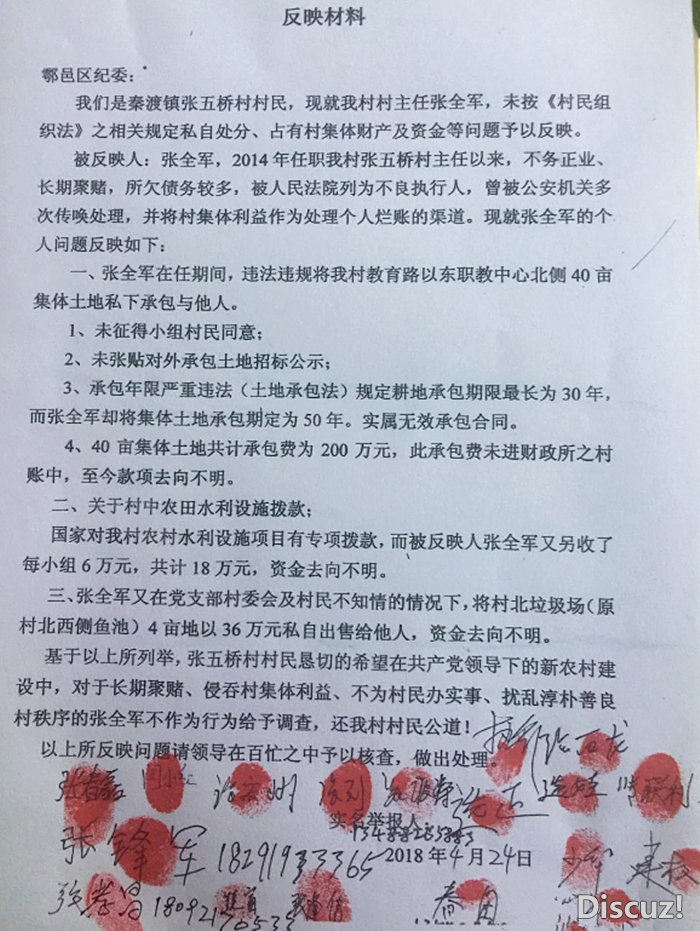 反映材料
鄠邑区纪委：
我们是秦渡镇张五桥村村民，现就我村村主任张全军，未按《村民组
织法》之相关规定私自处分、占有村集体财产及资金等问题予以反映。
被反映人：张全军，2014 年任职我村张五桥村主任以来，不务正业、
长期聚赌，所欠债务较多，被人民法院列为不良执行人，曾被公安机关多
次传唤处理，并将村集体利益作为处理个人烂账的渠道。现就张全军的个
人问题反映如下：
一、张全军在任期间，违法违规将我村教育路以东职教中心北侧 40 亩
集体土地私下承包与他人。
1、未征得小组村民同意；
2、未张贴对外承包土地招标公示；
3、承包年限严重违法（土地承包法）规定耕地承包期限最长为 30 年，
而张全军却将集体土地承包期定为 50 年。实属无效承包合同。
4、40 亩集体土地共计承包费为 200 万元，此承包费未进财政所之村
账中，至今款项去向不明。
二、关于村中农田水利设施拨款；
国家对我村农村水利设施项目有专项拨款，而被反映人张全军又另收了
每小组 6 万元，共计 18 万元，资金去向不明。
三、张全军又在党支部村委会及村民不知情的情况下，将村北垃圾场（原
村北西侧鱼池）4 亩地以 36 万元私自出售给他人，资金去向不明。
基于以上所列举，张五桥村村民恳切的希望在共产党领导下的新农村建
设中，对于长期聚赌、侵吞村集体利益、不为村民办实事、扰乱淳朴善良
村秩序的张全军不作为行为给予调查，还我村村民公道！
以上所反映问题请领导在百忙之中予以核查，做出处理。
实名举报人
张锋军 18291933365
2018 年 4 月 24 日
Discuz!